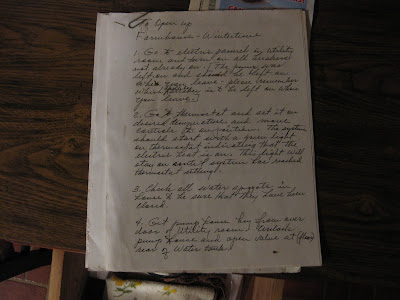 To Open up
Farmhouse - Wintertime
1. Go to electric pannel by Utility
room and turn on all breakers
not already on. (The was
left on and should be left on
when you leave - please remember
which breaker is to be left on when
you leave.)
2. Go to thermostat and set it on
desired temperature and move
to on position. The system
should start with a green light
on thermostat indicating that the
electric heat is on. This light will
stay on until system has reached
thermostat settings.
3. Check all water spigots in
house to be sure that they have been
closed.
4. Get pump house key from over
door of Utility room. Unlock
pump house and open valve at (floor)
rear of Water tank.